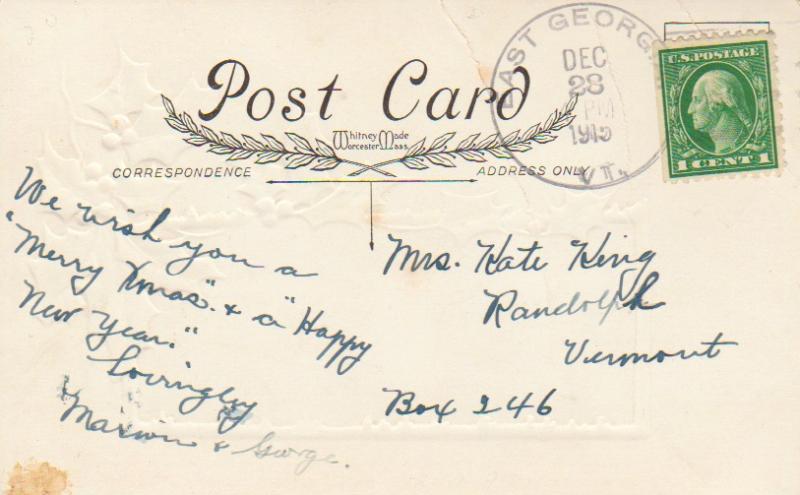 Post Card
Whitney Made
Worcester Mass.
CORRESPONDENCE
ADDRESS ONLY
EAST GEORG
DEC
28
PM
191
VT.
U.S. POSTAGE
1 CENT 1
We wish you a
"Merry Xmas" & a "Happy
New Year."
Lovingley
&  George.
Mrs. Kate King
Randolph
Vermont
Box 246